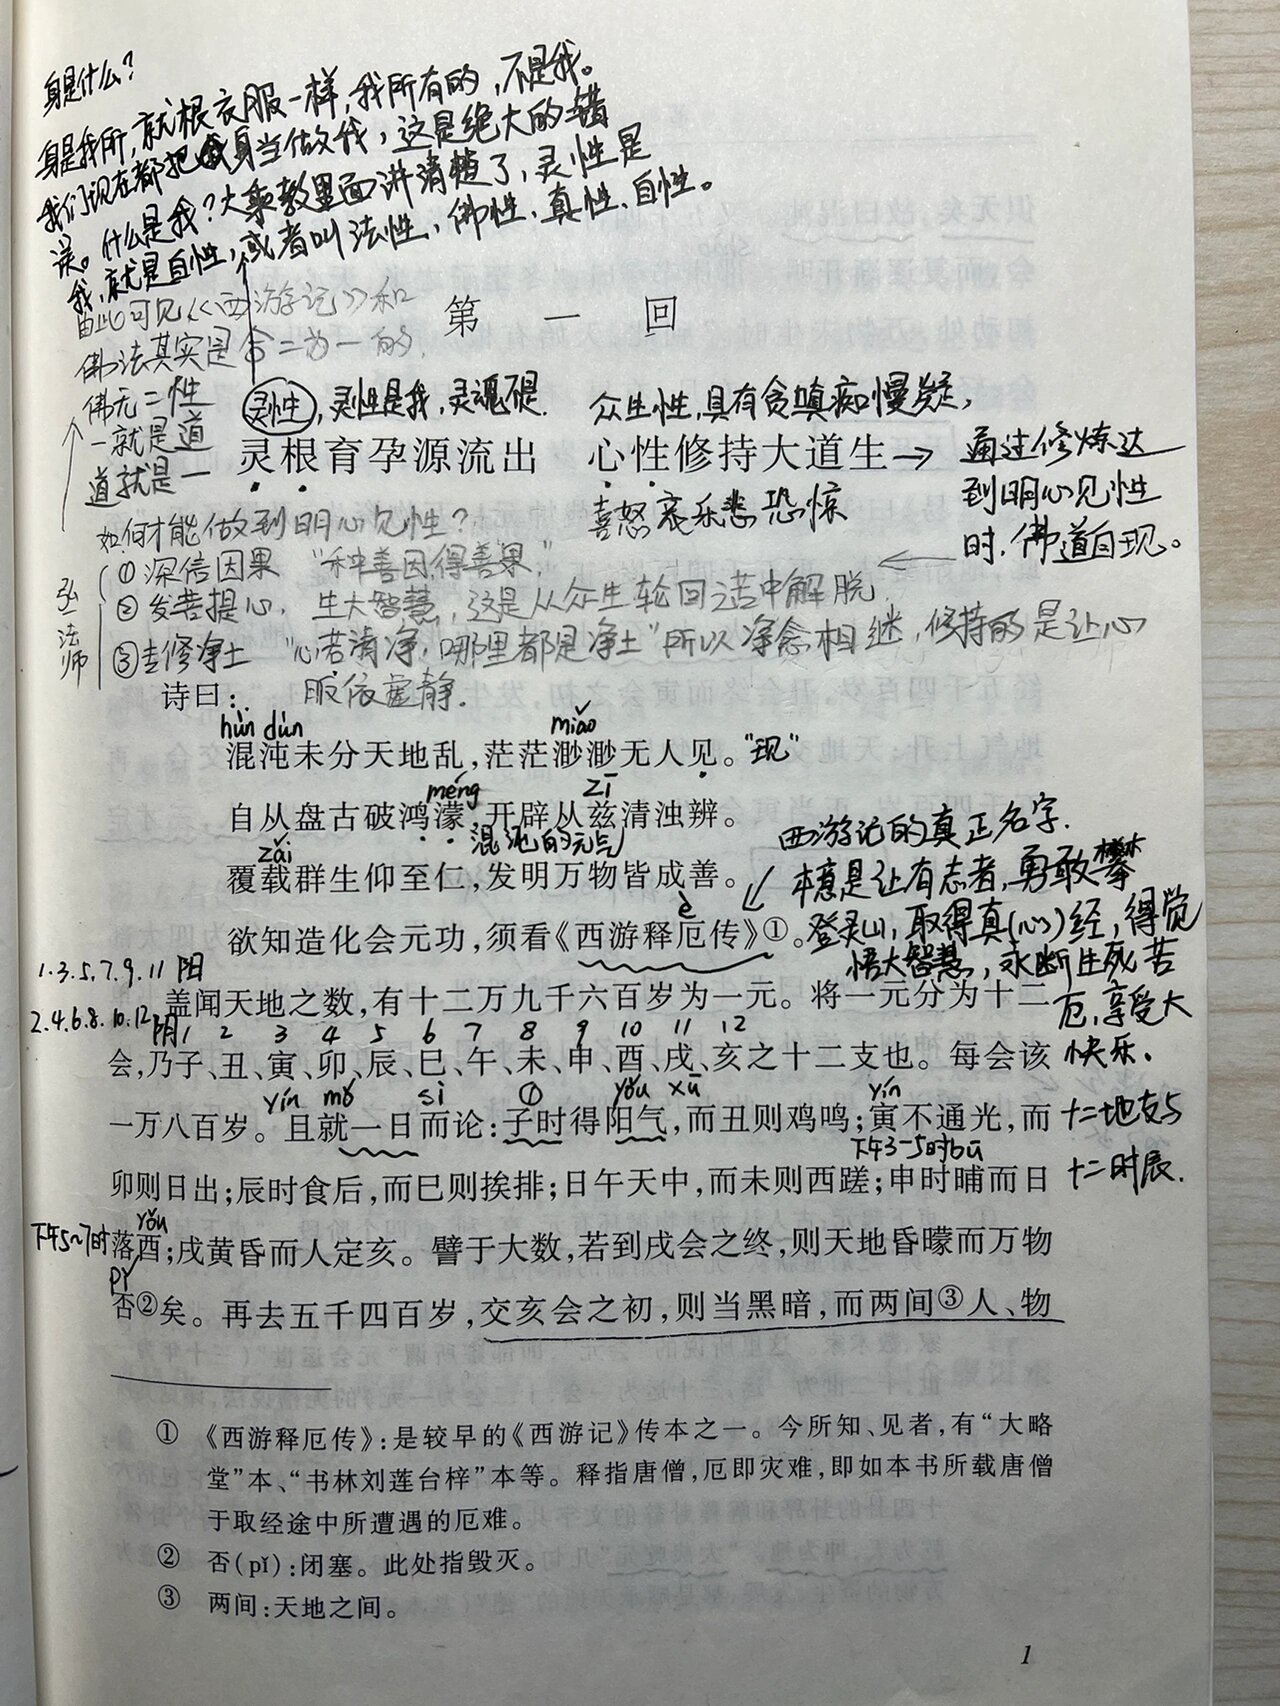 身是什么?
身是我所,就根衣服一样,我所有的,不是我。
我们现在都把身当做我,这是绝大的错
误。什么是我?大乘教里面讲清楚了,灵性是
我,就是自性,或者叫法性、佛性、真性、自性。
由此可见《西游记》和
佛法其实是合二为一的.
佛无二性
一就是道
道就是一
第一回
灵性,灵性是我,灵魂不是.
众生性,具有贪嗔痴慢疑,
灵根育孕源流出 心性修持大道生→
通过修炼达
到明心见性
时,佛道自现。
喜怒哀乐悲恐惊
如何才能做到明心见性?
弘一法师
①深信因果 “种善因,得善果,”
②发菩提心, 生大智慧,这是从众生轮回之苦中解脱.
③去修净土 “心若清净,哪里都是净土”所以净念相继,修持的是让心
服依虚静.
诗曰:
hùn dùn miǎo
混沌未分天地乱,茫茫渺渺无人见。“现”
méng zī
自从盘古破鸿濛,开辟从兹清浊辨。
混沌的元气
zài
覆载群生仰至仁,发明万物皆成善。
è
欲知造化会元功,须看《西游释厄传》①。
西游记的真正名字.
本意是让有志者,勇敢攀
登灵山,取得真(心)经,得觉
悟大智慧,永断生死苦
厄,享受大
快乐.
1.3.5.7.9.11 阳
盖闻天地之数,有十二万九千六百岁为一元。将一元分为十二
2.4.6.8.10.12 阴
1 2 3 4 5 6 7 8 9 10 11 12
会,乃子、丑、寅、卯、辰、巳、午、未、申、酉、戌、亥之十二支也。每会该
yín mǒ sì ① yǒu xū yín
一万八百岁。且就一日而论:子时得阳气,而丑则鸡鸣;寅不通光,而
十二地支与
十二时辰.
下午3-5时bū
卯则日出;辰时食后,而巳则挨排;日午天中,而未则西蹉;申时晡而日
下午5~7时 yǒu
落酉;戌黄昏而人定亥。譬于大数,若到戌会之终,则天地昏曚而万物
pǐ
否②矣。再去五千四百岁,交亥会之初,则当黑暗,而两间③人、物
① 《西游释厄传》:是较早的《西游记》传本之一。今所知、见者,有“大略
堂”本、“书林刘莲台梓”本等。释指唐僧,厄即灾难,即如本书所载唐僧
于取经途中所遭遇的厄难。
② 否(pǐ):闭塞。此处指毁灭。
③ 两间:天地之间。
1